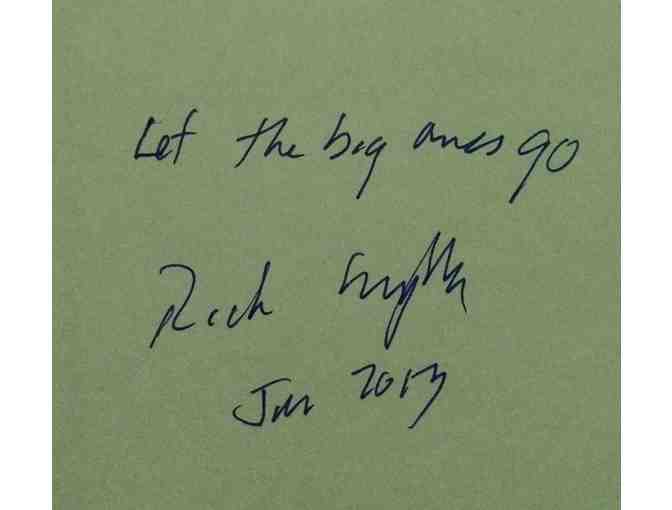 Let the big ones go
Rich
Jun 2013